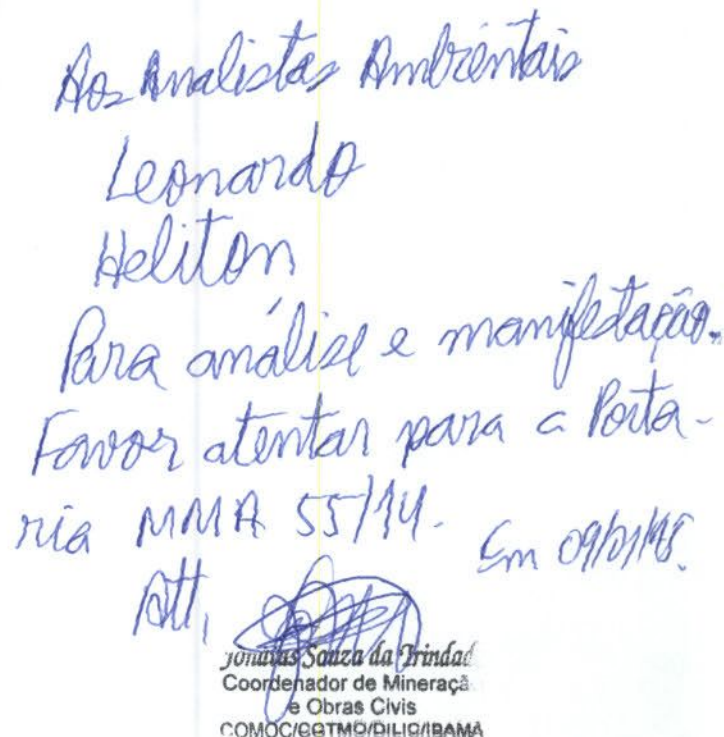 Aos Analistas Ambientais
Leonardo
Heliton
Para análise e manifestação.
Favor atentar para a Porta-
ria MMA 55/14.
Em
Att,
Jonatas Souza da Trindad
Coordenador de Mineraçã
e Obras Civis
COMOC/CGTMO/DILIC/IBAMA